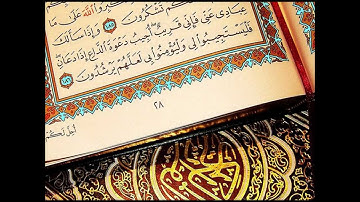 كَبِّرُوا۟ اللَّهَ عَلَىٰ مَا
كُمْ تَشْكُرُونَ ١٨٥ وَإِذَا سَأَلَكَ
عِبَادِى عَنِّى فَإِنِّى قَرِيبٌ أُجِيبُ دَعْوَةَ ٱلدَّاعِ إِذَا دَعَانِ
فَلْيَسْتَجِيبُوا۟ لِى وَلْيُؤْمِنُوا۟ بِى لَعَلَّهُمْ يَرْشُدُونَ ١٨٦
٢٨
أُحِلَّ لَكُمْ